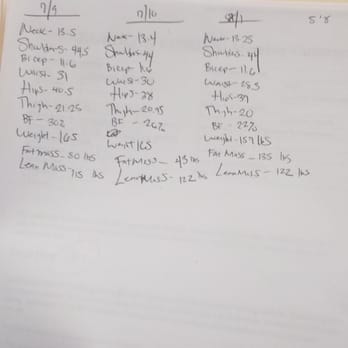 7/9
Neck - 13.5
Shoulders - 44.5
Bicep - 11.6
Waist - 31
Hips - 40.5
Thigh - 21.25
BF - 30%
Weight - 165
Fat mass - 50 lbs
Lean Mass - 115 lbs
7/10
Neck - 13.4
Shoulders - 44
Bicep -
Waist - 30
Hips - 38
Thigh - 20.95
BF - 26%
Weight 165
Fat Mass - 43 lbs
Lean Mass - 122 lbs
8/1
Neck - 13.25
Shoulders - 44
Bicep - 11.6
Waist - 28.5
Hips - 39
Thigh - 20
BF - 22%
Weight - 157 lbs
Fat Mass - 135 lbs
Lean Mass - 122 lbs
5'8